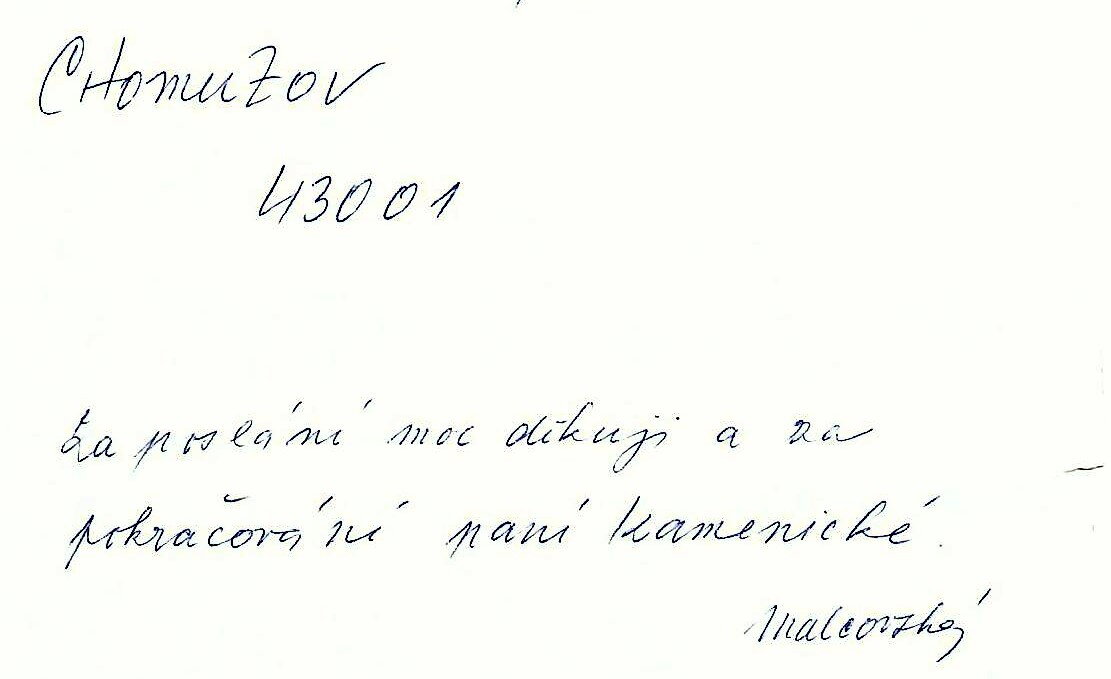 CHOMUTOV
43001
Za poslání moc děkuji a za
pokračování paní Kamenické.
Malcovský